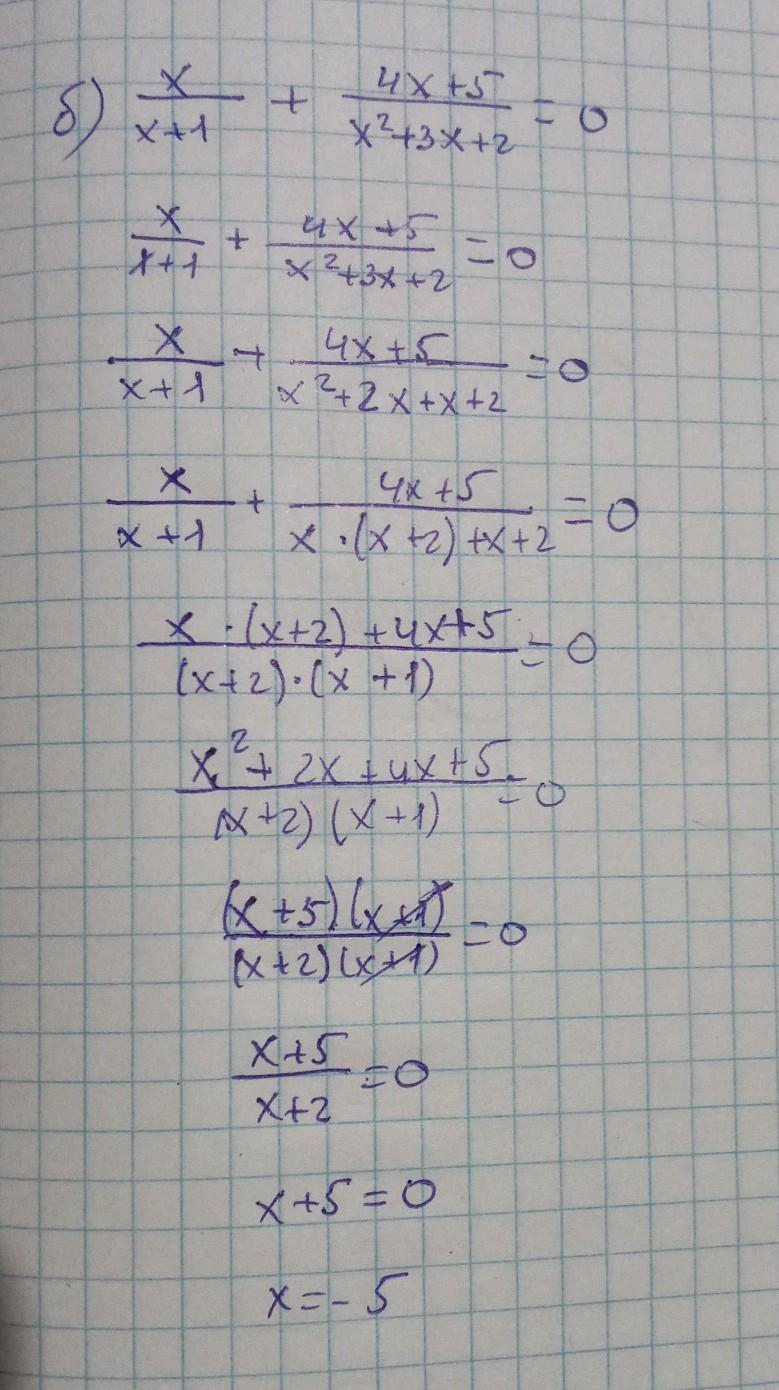 б) x/(x+1) + (4x+5)/(x²+3x+2) = 0
x/(x+1) + (4x+5)/(x²+3x+2) = 0
x/(x+1) + (4x+5)/(x²+2x+x+2) = 0
x/(x+1) + (4x+5)/(x·(x+2)+x+2) = 0
(x·(x+2)+4x+5)/((x+2)·(x+1)) = 0
(x²+2x+4x+5)/((x+2)(x+1)) = 0
((x+5)(x+1))/((x+2)(x+1)) = 0
(x+5)/(x+2) = 0
x+5=0
x=-5